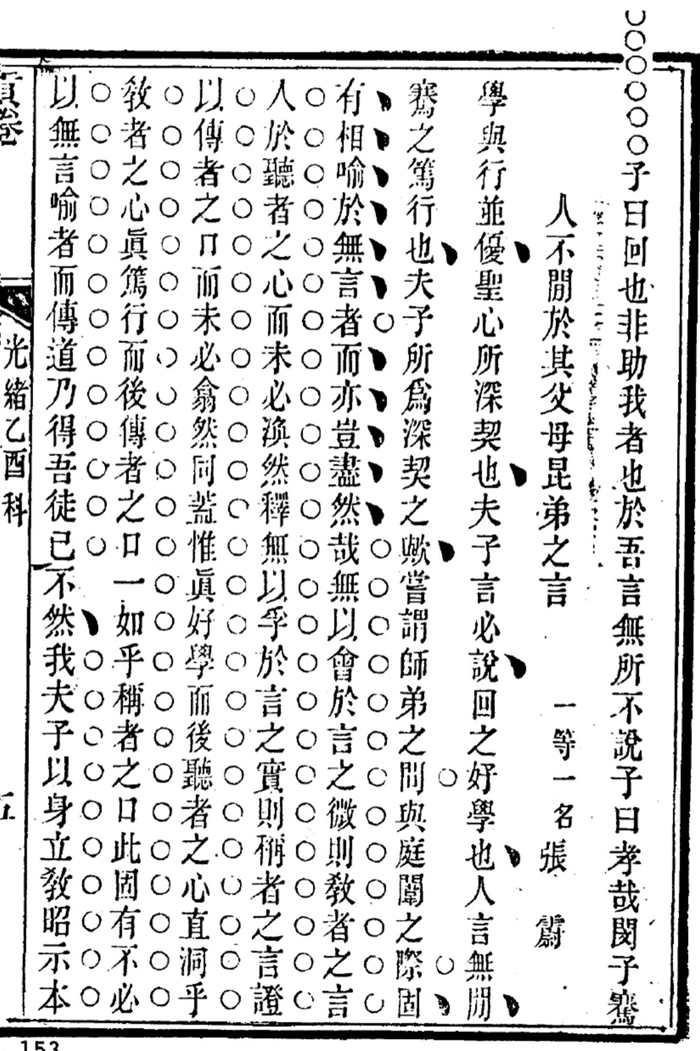 子曰回也非助我者也於吾言無所不說子曰孝哉閔子騫
人不間於其父母昆弟之言
一等一名張霨
學與行並優聖心所深契也夫子言必說回之好學也人言無間
騫之篤行也夫子所爲深契之歟嘗謂師弟之間與庭闈之際固
有相喻於無言者而亦豈盡然哉無以會於言之微則敎者之言
人於聽者之心而未必渙然釋無以孚於言之實則稱者之言證
以傳者之口而未必翕然同蓋惟眞好學而後聽者之心直洞乎
敎者之心眞篤行而後傳者之口一如乎稱者之口此固有不必
以無言喻者而傳道乃得吾徒已不然我夫子以身立敎昭示本
光緒乙酉科
五
153